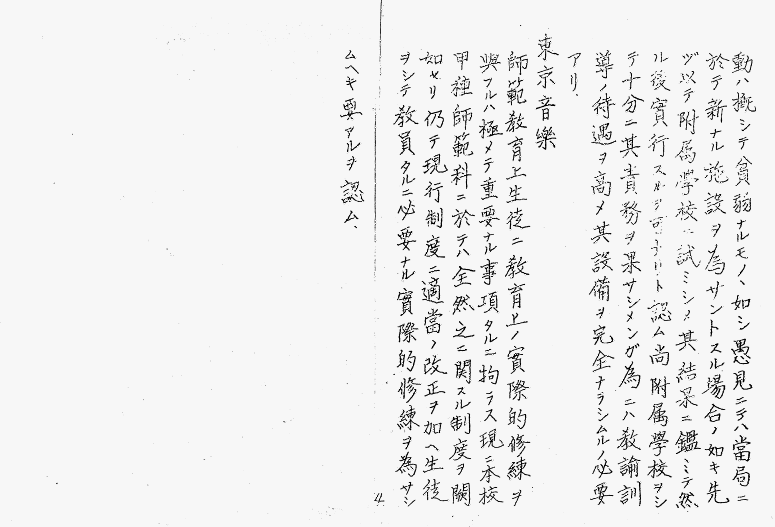 動ハ概シテ貧弱ナルモノヽ如シ愚見ニテハ當局ニ
於テ新ナル施設ヲ為サントスル場合ノ如キ先
ヅ以テ附属學校ニ試ミシメ其結果ニ鑑ミテ然
ル後實行スルヲ可ナリト認ム尚附属學校ヲシ
テ十分ニ其責務ヲ果サシメンガ為ニハ教諭訓
導ノ待遇ヲ高メ其設備ヲ完全ナラシムルノ必要
アリ、
東京音樂
師範教育上生徒ニ教育上ノ實際的修練ヲ
與フルハ極メテ重要ナル事項タルニ拘ラス現ニ本校
甲種師範科ニ於テハ全然之ニ関スル制度ヲ闕
如セリ仍テ現行制度ニ適當ノ改正ヲ加ヘ生徒
ヲシテ教員タルニ必要ナル實際的修練ヲ為サシ
4
ムヘキ要アルヲ認ム、